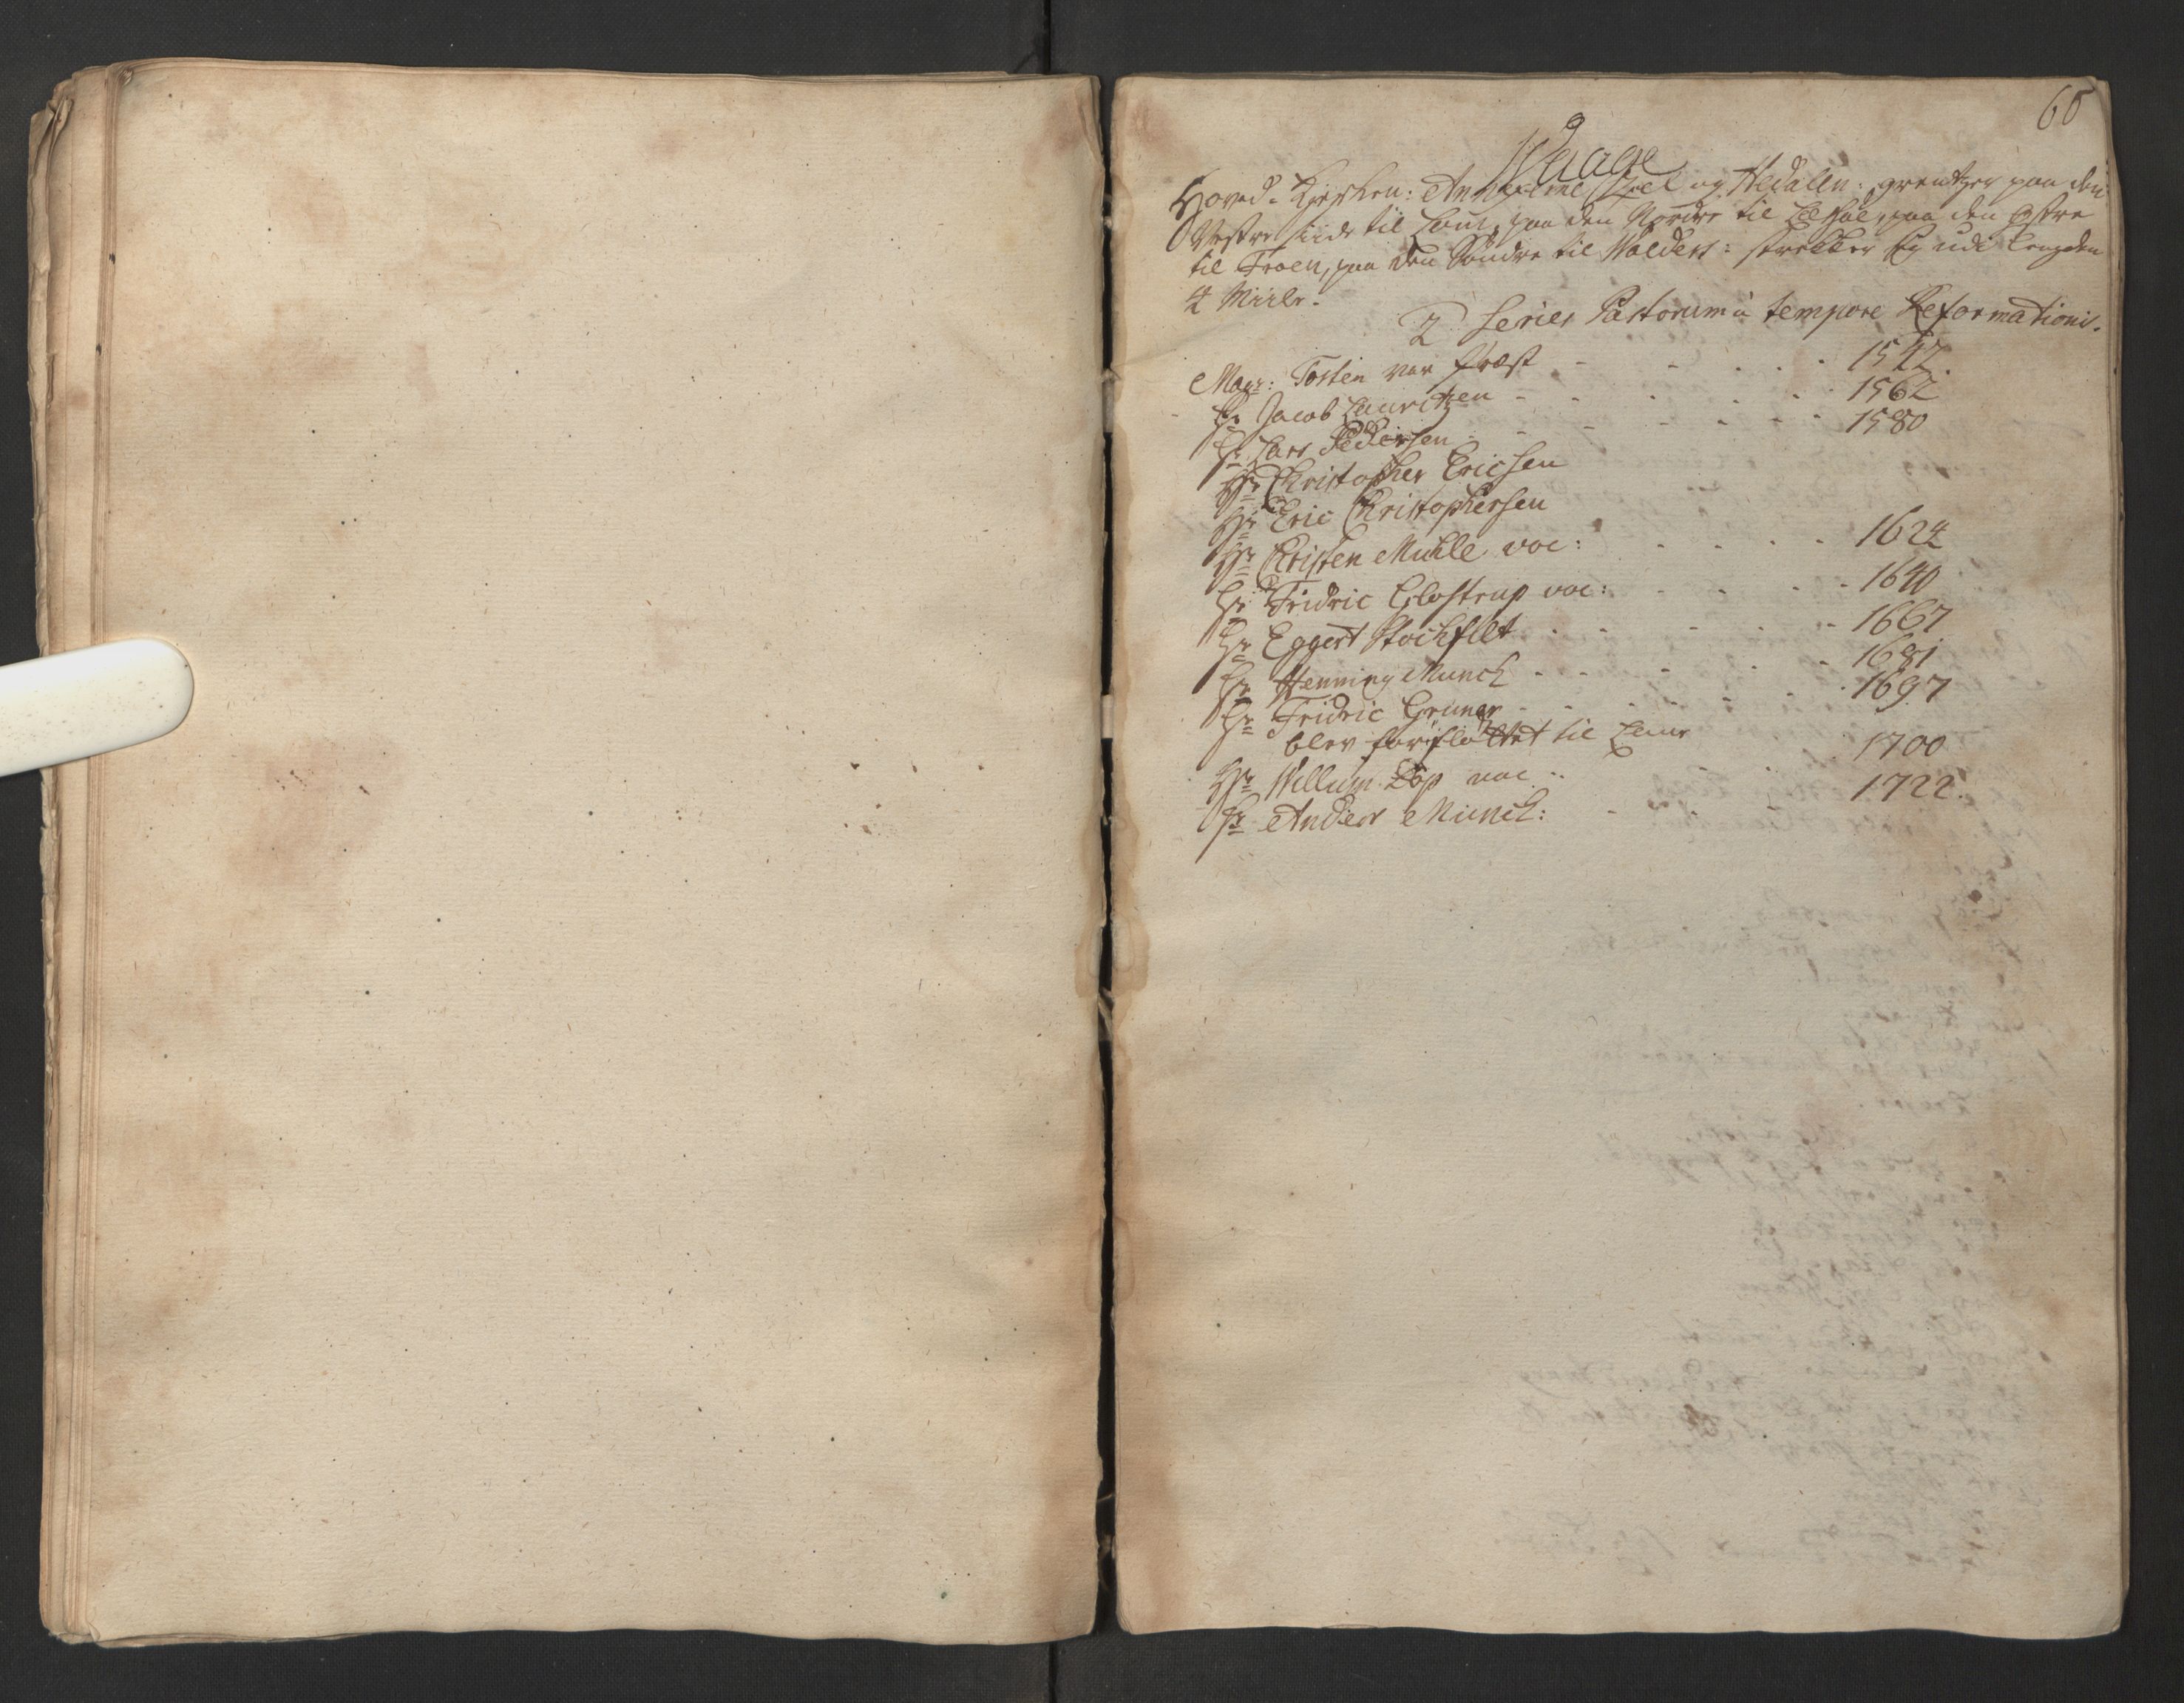 60
Waage
Hoved-Kirken: Annexerne Zeel og Hedalen: grentzer paa den
Vestre siide til Lom, paa den Nordre til Lessøe, paa den Østre
til Froen, paa den Søndre til Walders: strekker sig udi Lengden
4 Miile.
2 Series Pastorum à tempore Reformationis.
Magr: Tosten var Præst - - - - - 1542.
Hr Jacob Lauritzen - - - - - 1562
Hr Lars Pedersen - - - - - - 1580
Hr Christopher Ericsen
Hr Eric Christophersen
Hr Christen Muhle voc: - - - - 1624
Hr Fridric Glostrup voc: - - - - 1640
Hr Eggert Stochflet - - - - - 1667
Hr Henning Munch - - - - - 1681
Hr Fridric Gruner - - - - - - 1697
blev forfløttet til Lom
Hr Willum Dop voc: - - - 1700
Hr Anders Munch: - - - 1722.